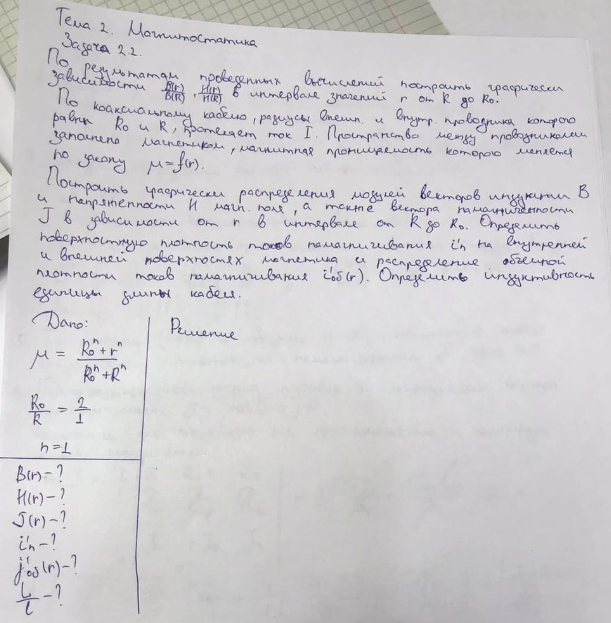 Тема 2. Магнитостатика
Задача 2.2.
По результатам проведенных вычислений построить графически
зависимости B(r)/B(R), H(r)/H(R) в интервале значений r от R до R₀.
По коаксиальному кабелю, радиусы внешн. и внутр. проводника которого
равны R₀ и R, протекает ток I. Пространство между проводниками
заполнено магнетиком, магнитная проницаемость которого меняется
по закону μ=f(r).
Построить графически распределения модулей векторов индукции B
и напряженности H магн. поля, а также вектора намагниченности
J в зависимости от r в интервале от R до R₀. Определить
поверхностную плотность токов намагничивания i'н на внутренней
и внешней поверхностях магнетика и распределение объемной
плотности токов намагничивания i'об(r). Определить индуктивность
единицы длины кабеля.
Дано:
μ = (R₀ⁿ + rⁿ)/(R₀ⁿ + Rⁿ)
R₀/R = 2/1
n=1
B(r)-?
H(r)-?
J(r)-?
i'н-?
j'об(r)-?
L/l-?
Решение